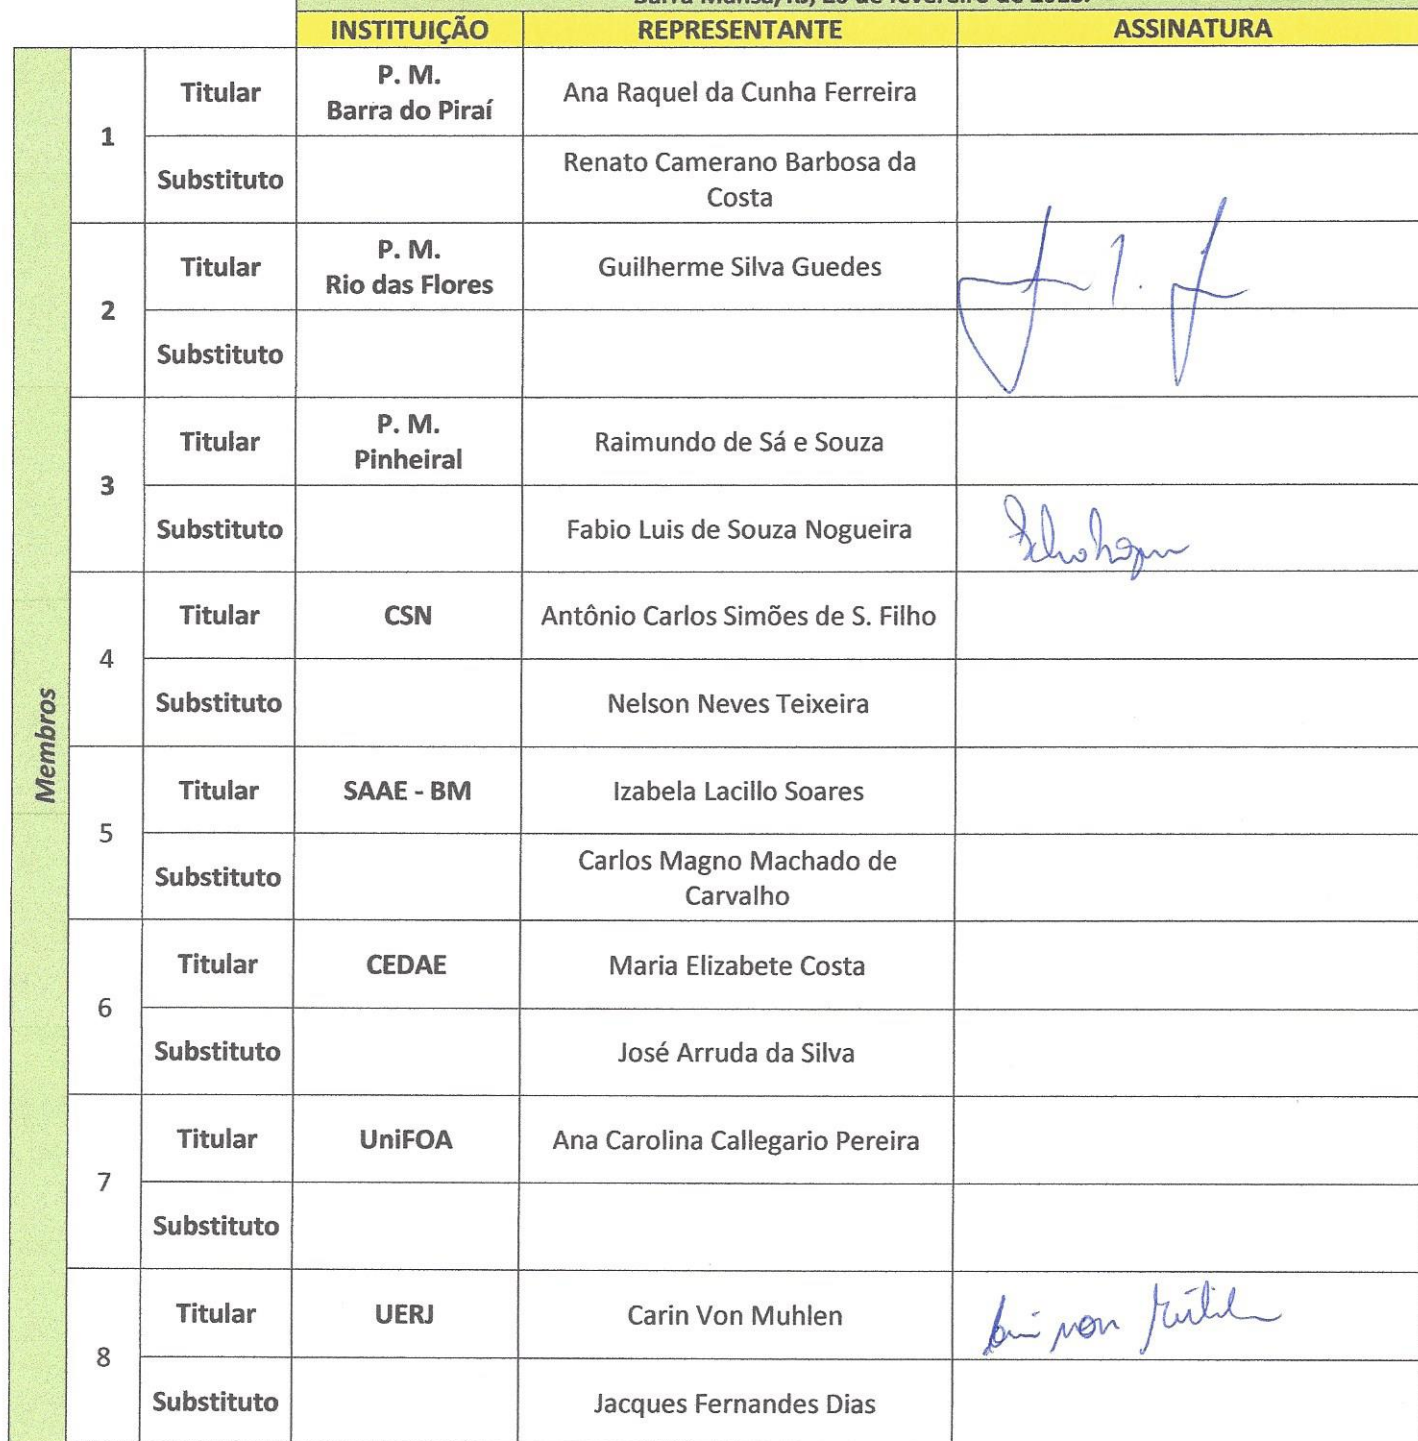 INSTITUIÇÃO REPRESENTANTE ASSINATURA
Membros
1
Titular
P. M.
Barra do Piraí
Ana Raquel da Cunha Ferreira
Substituto
Renato Camerano Barbosa da
Costa
2
Titular
P. M.
Rio das Flores
Guilherme Silva Guedes
Substituto
3
Titular
P. M.
Pinheiral
Raimundo de Sá e Souza
Substituto
Fabio Luis de Souza Nogueira
4
Titular
CSN
Antônio Carlos Simões de S. Filho
Substituto
Nelson Neves Teixeira
5
Titular
SAAE - BM
Izabela Lacillo Soares
Substituto
Carlos Magno Machado de
Carvalho
6
Titular
CEDAE
Maria Elizabete Costa
Substituto
José Arruda da Silva
7
Titular
UniFOA
Ana Carolina Callegario Pereira
Substituto
8
Titular
UERJ
Carin Von Muhlen
von
Substituto
Jacques Fernandes Dias